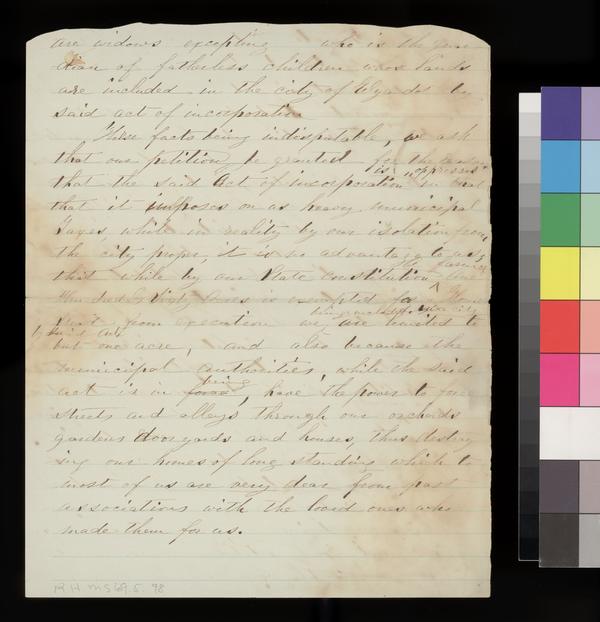 are widows excepting who is the guar-
dian of fatherless children whose lands
are included in the city of Wyandot by
said act of incorporation
These facts being indisputable, we ask
that our petition be granted for the reason
is oppressive
that the said act of incorporation in that
that it imposes on us heavy municipal
Taxes, while in reality by our isolation from
the city proper, it is no advantage to us,
that while by our State constitution
hundred & sixty acres is exempted for
from execution we are limited to
but one acre, and also because the
municipal authorities, while the said
being
act is in force, have the power to force
streets and alleys through our orchards
gardens dooryards and houses, thus destroy
ing our homes of long standing which to
most of us are very dear from past
associations with the loved ones who
made them for us.
R.H. MS 69.5.98